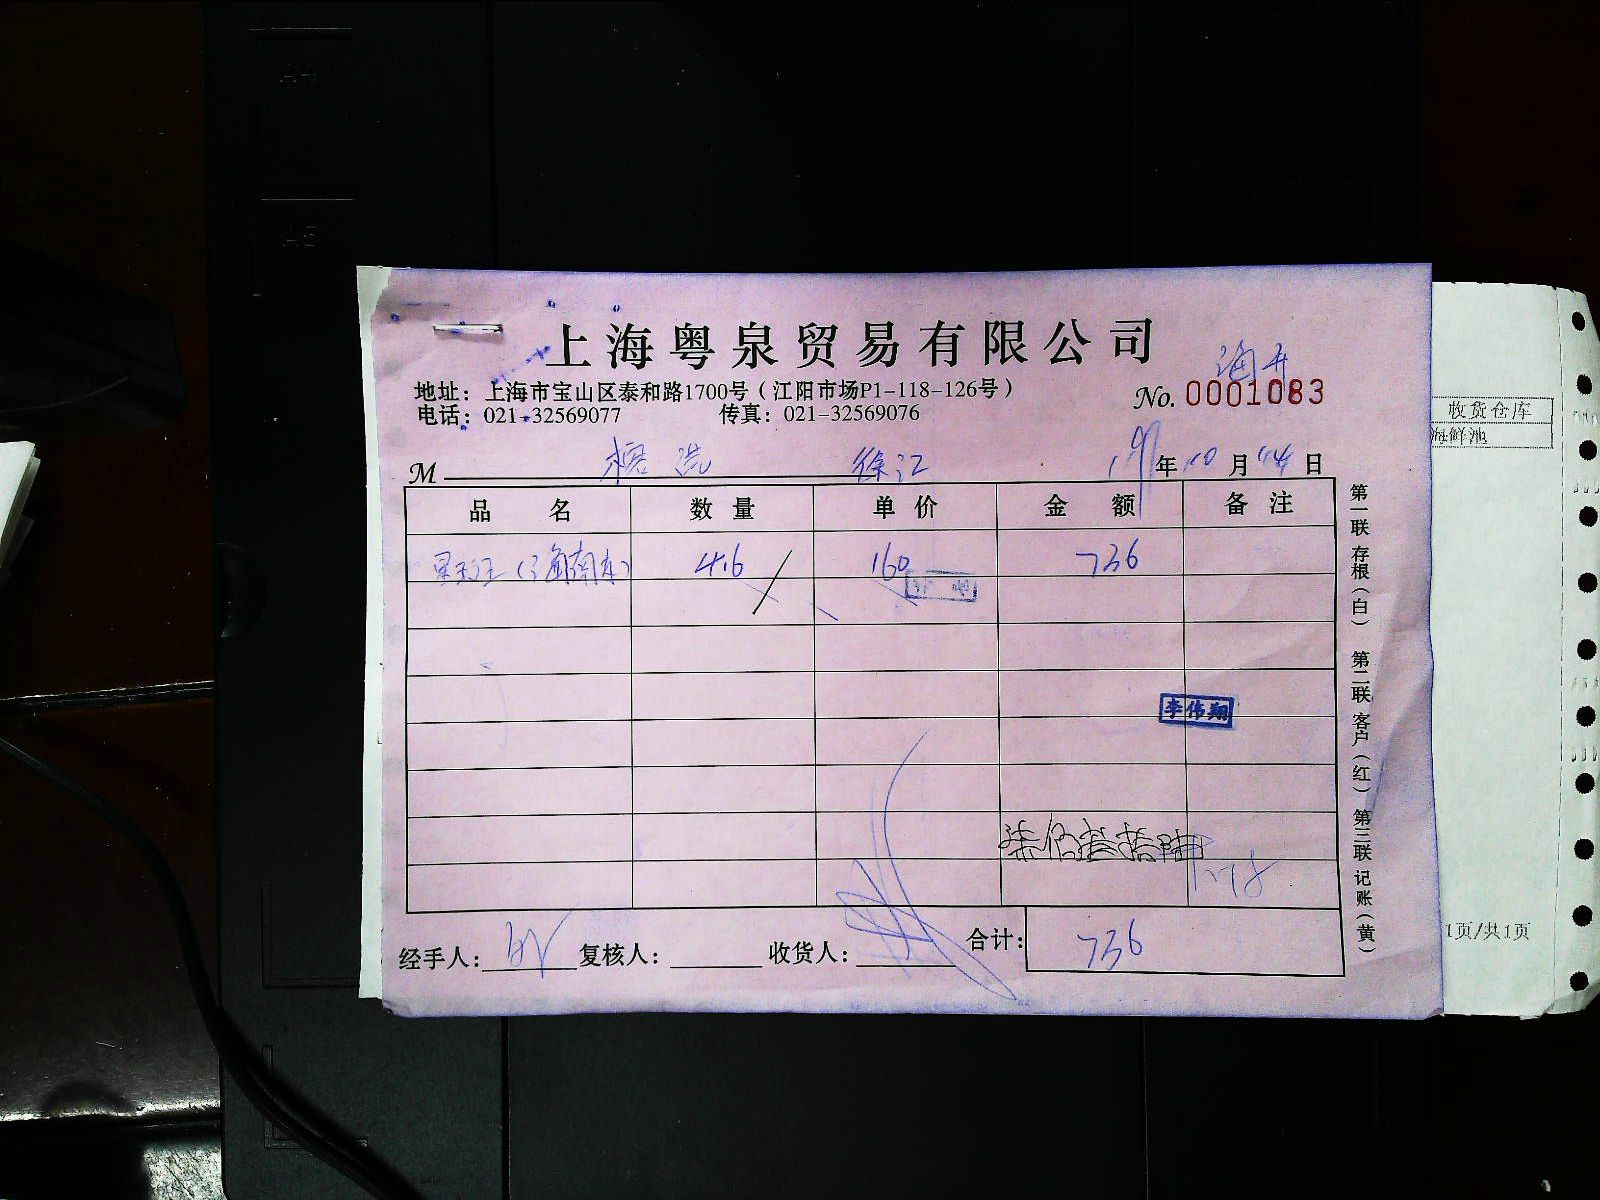 上海粤泉贸易有限公司
地址：上海市宝山区泰和路1700号（江阳市场P1-118-126号）
No. 0001083
电话：021-32569077 传真：021-32569076
收货仓库
海鲜池
M 徐江 19年10月14日
品名 数量 单价 金额 备注
4.6 160 736
李伟翔
柒佰叁拾陆
经手人： 复核人： 收货人： 合计：736
第一联 存根（白） 第二联 客户（红） 第三联 记账（黄）
1页/共1页
A4
A5